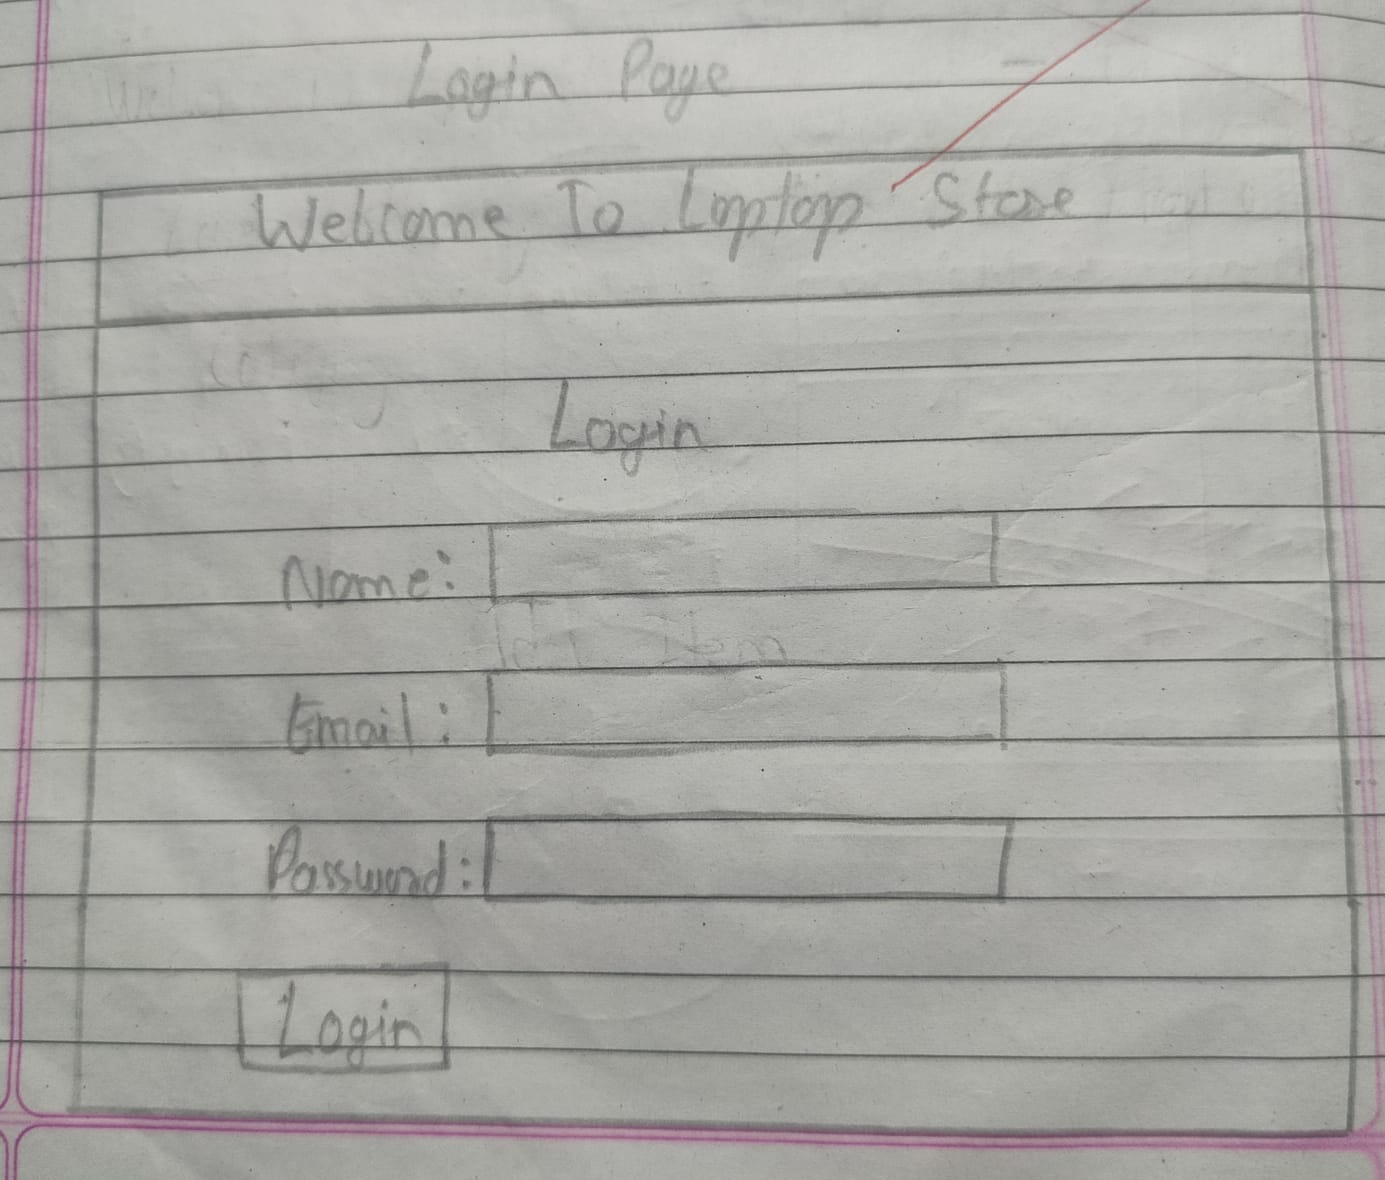 Login Page
Welcome To Loptop Store
Login
Name:
Email:
Password:
Login